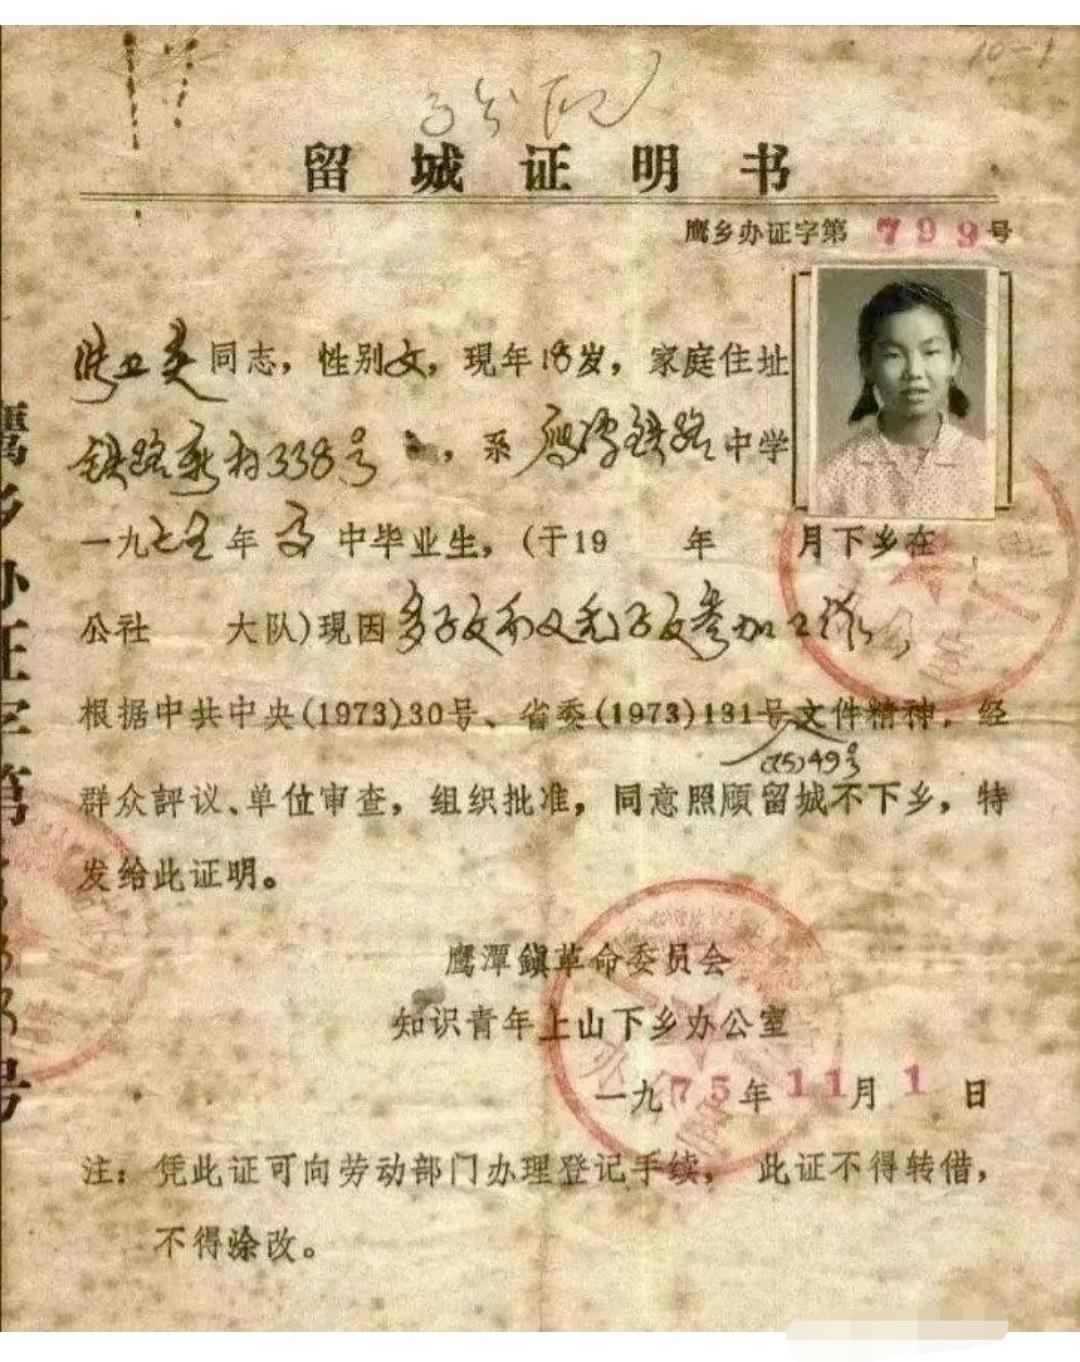 10-1
留城证明书
鹰乡办证字第799号
张卫英同志，性别女，現年18岁，家庭住址
铁路新村338号，系鹰潭铁路中学
一九七五年高中毕业生，(于19 年 月下乡在
公社 大队)現因多子女而又无子女参加工作
根据中共中央(1973)30号、省委(1973)131号文件精神，经
(75)49号
群众評议、单位审查，组织批准，同意照顾留城不下乡，特
发给此证明。
鹰潭鎮革命委员会
知识青年上山下乡办公室
一九75年11月1日
注：凭此证可向劳动部门办理登记手续，此证不得转借，
不得涂改。
鹰乡办证字第
号